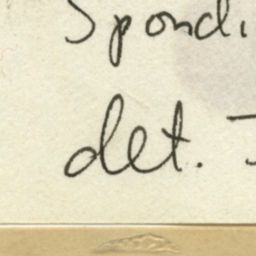 Spondi
det.